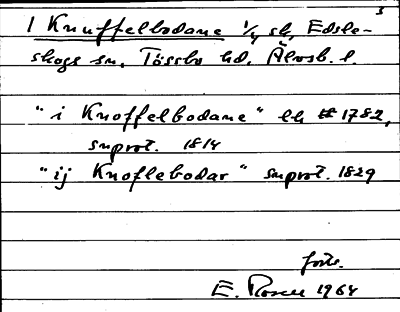 3
1 Knuffelbodane 1/4 sk, Edsle-
skogs sn, Tössbo hd, Älvsb. l.
"i Knoffelbodane" lh 1782,
snprot. 1814
"ij Knoflebodar" snprot. 1829
forts.
E. Rosell 1964